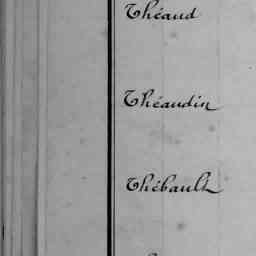 Théaud
Théaudin
Thébault